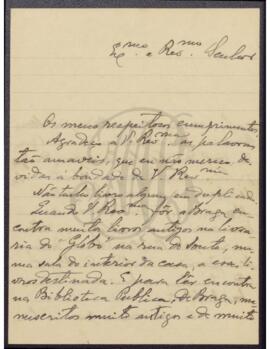 Exmo e Revmo Senhor
Os meus respeitosos cumprimentos.
Agradeço a V. Revma as palavras
tão amaveis, que eu não mereço, de-
vidas á bondade de V. Revma
Não tenho livro algum em duplicado.
Quando V. Revma fôr a Braga, en-
contra muitos livros antigos na livra-
ria do "Globo" na rua do Souto, nu-
ma sala do interior da casa, a esse li-
vros destinada. E para lêr encontra
na Biblioteca Publica, de Braga, ma-
nuscritos muito antigos e de muito